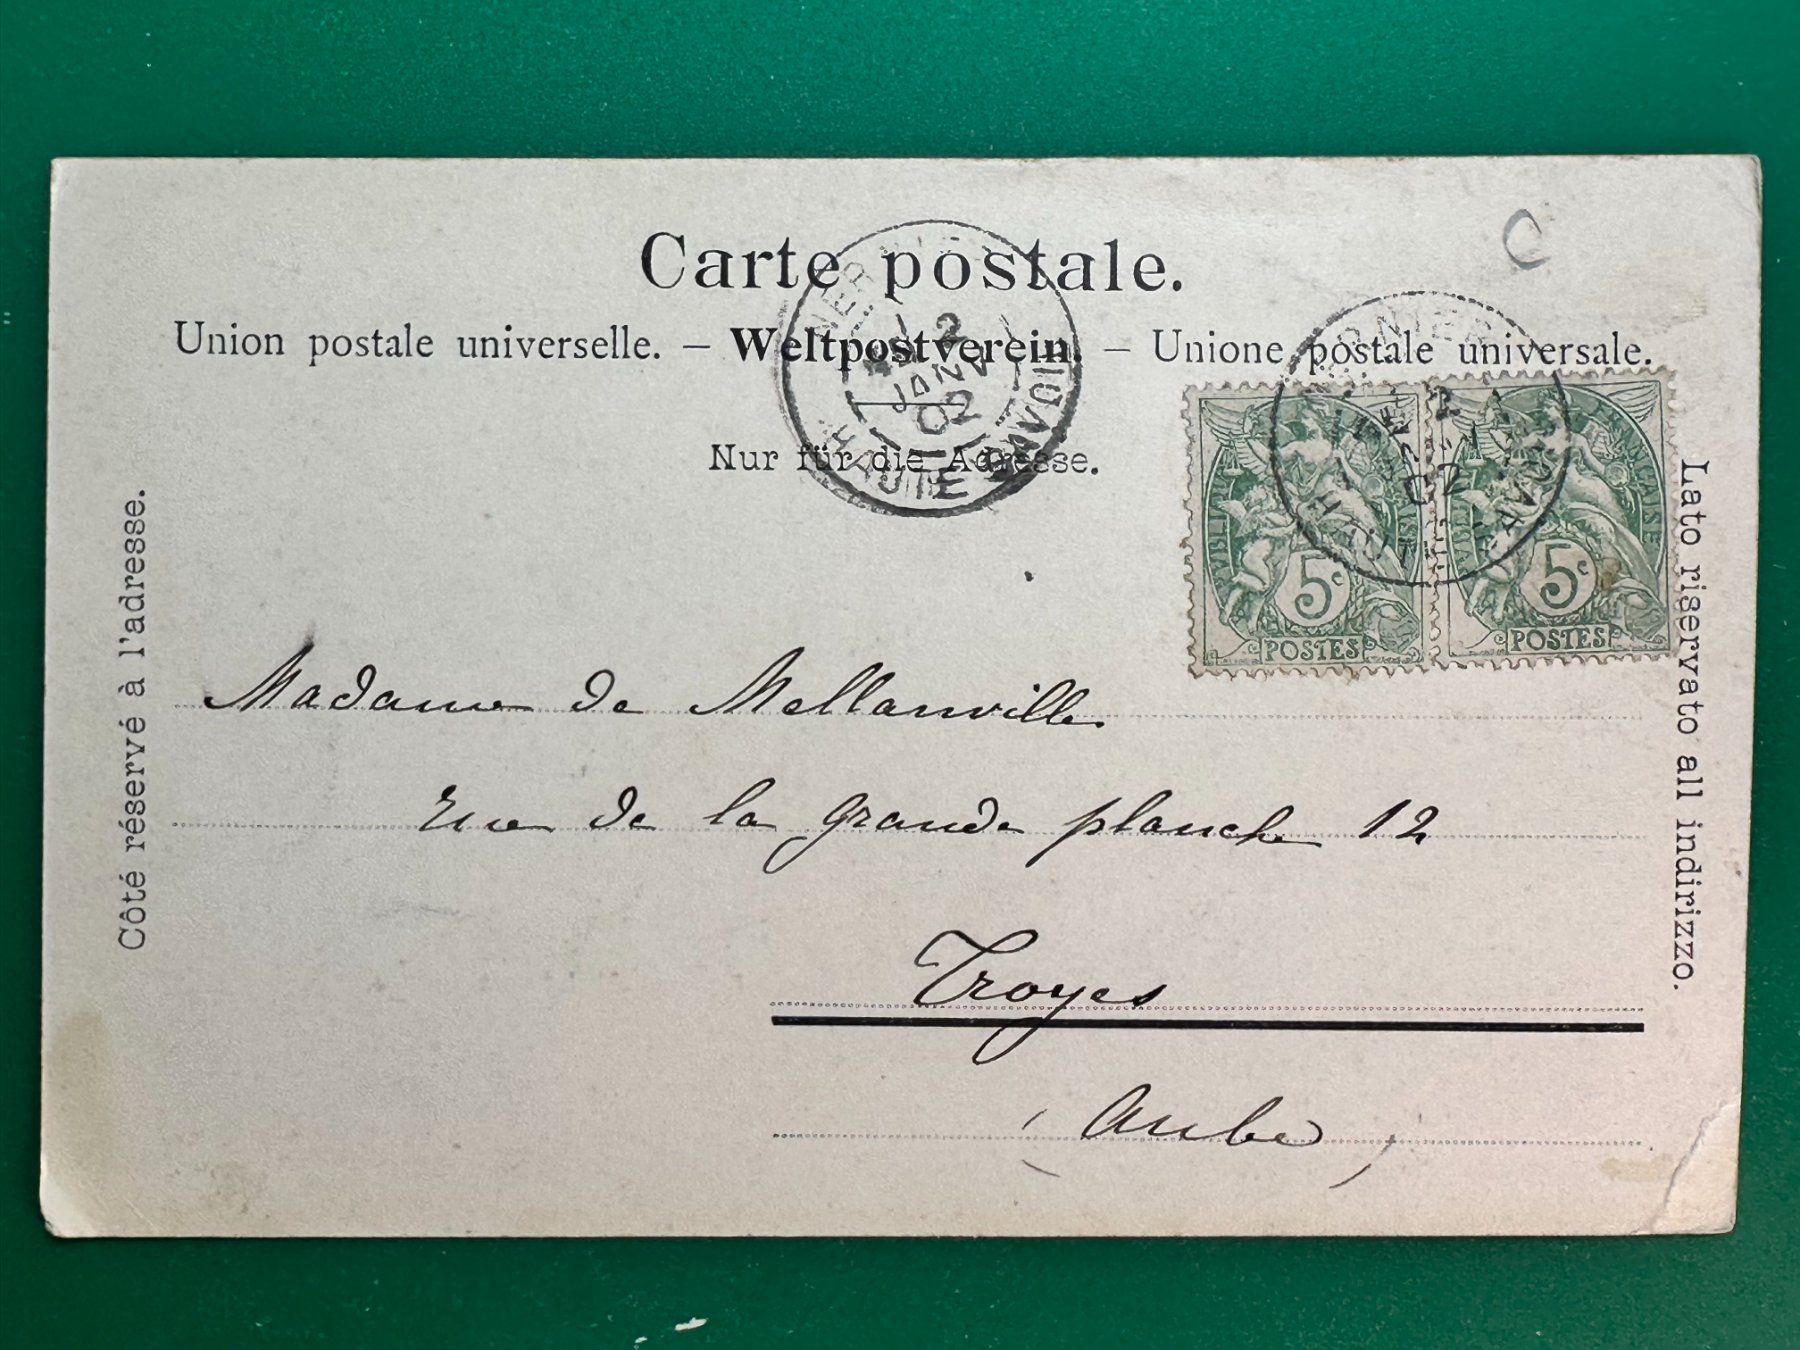 Carte postale.
Union postale universelle. – Weltpostverein. – Unione postale universale.
Nur für die Adresse.
Côté réservé à l'adresse.
Lato riservato all indirizzo.
2
JANV
02
HAUTE SAVOIE
5c
POSTES
5c
POSTES
Madame de Mellanville
Rue de la Grande planche 12
Troyes
(Aube)